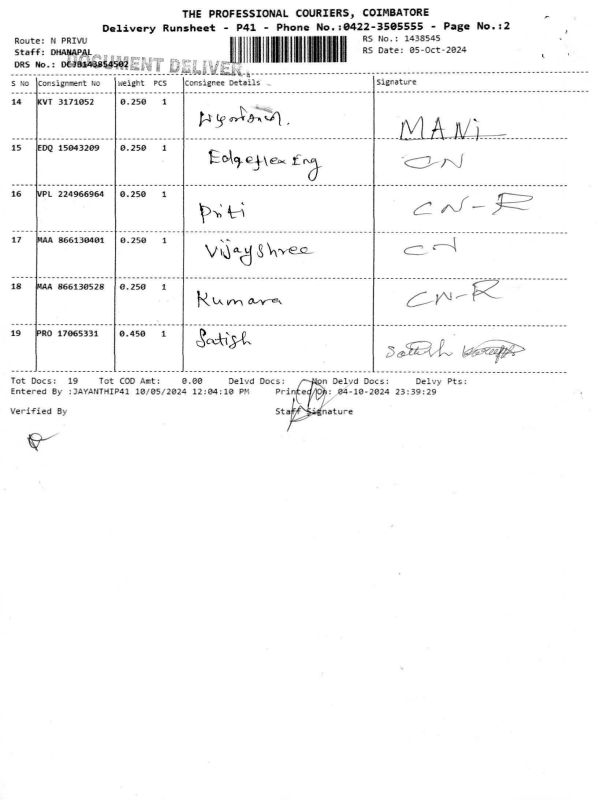 THE PROFESSIONAL COURIERS, COIMBATORE
Delivery Runsheet - P41 - Phone No.:0422-3505555 - Page No.:2
Route: N PRIVU
RS No.: 1438545
Staff: DHANAPAL
RS Date: 05-Oct-2024
DOCUMENT DELIVER
DRS No.:
S No Consignment No Weight PCS Consignee Details Signature
14 KVT 3171052 0.250 1 MANi
15 EDQ 15043209 0.250 1 Edgeflex Eng CN
16 VPL 224966964 0.250 1 Priti CN-R
17 MAA 866130401 0.250 1 Vijayshree CN
18 MAA 866130528 0.250 1 Kumara CN-R
19 PRO 17065331 0.450 1 Satish
Tot Docs: 19 Tot COD Amt: 0.00 Delvd Docs: Non Delvd Docs: Delvy Pts:
Entered By :JAYANTHIP41 10/05/2024 12:04:10 PM Printed On: 04-10-2024 23:39:29
Verified By Staff Signature